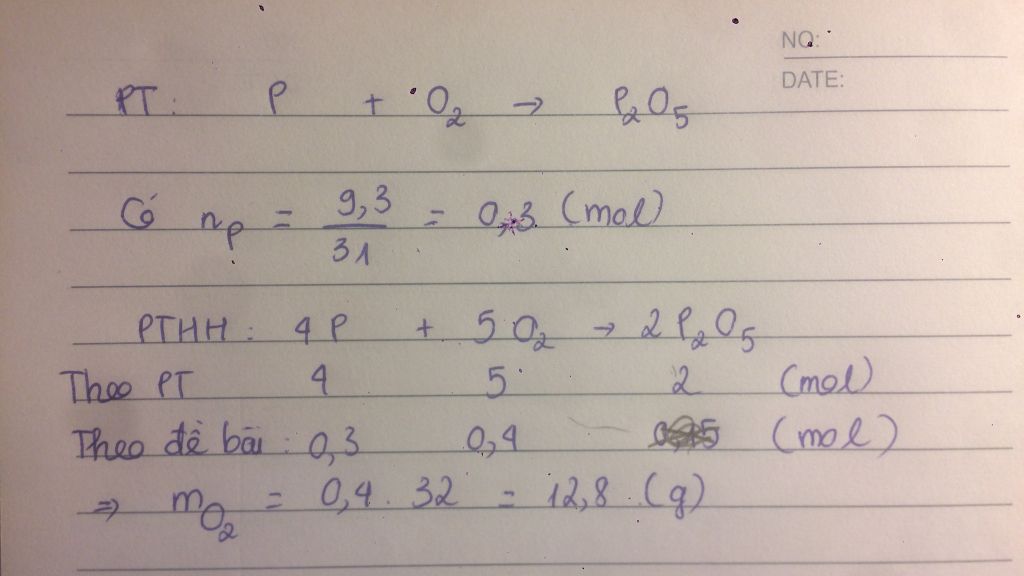 NO:
DATE:
PT: P + O₂ → P₂O₅
Có nₚ = 9,3/31 = 0,3 (mol)
PTHH: 4P + 5O₂ → 2P₂O₅
Theo PT 4 5 2 (mol)
Theo đề bài: 0,3 0,4 (mol)
⇒ m_O₂ = 0,4 . 32 = 12,8 (g)